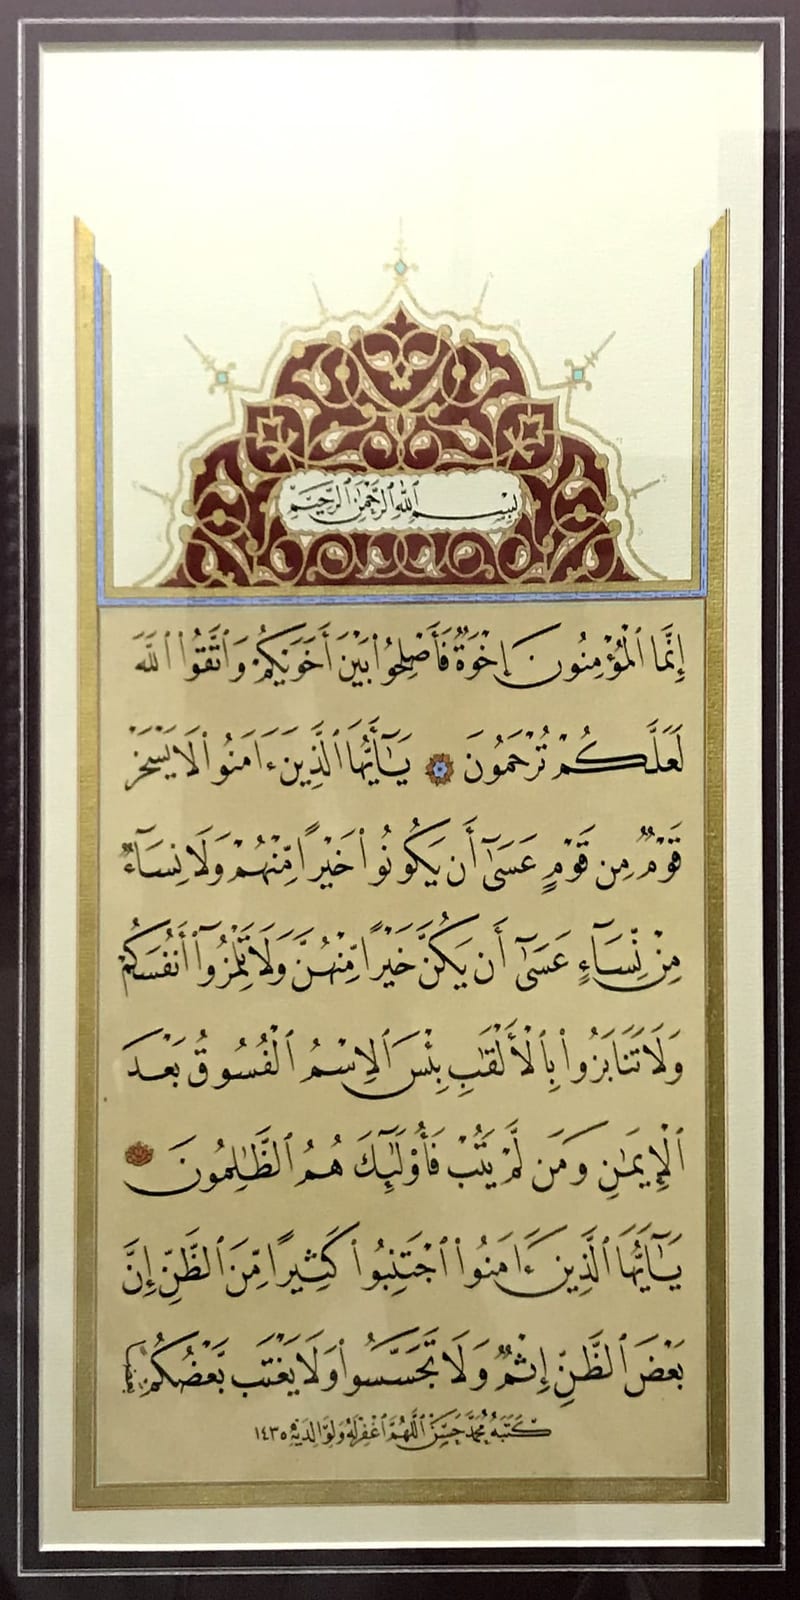 بِسْمِ ٱللَّهِ ٱلرَّحْمَٰنِ ٱلرَّحِيمِ
إِنَّمَا ٱلْمُؤْمِنُونَ إِخْوَةٌ فَأَصْلِحُوا۟ بَيْنَ أَخَوَيْكُمْ وَٱتَّقُوا۟ ٱللَّهَ
لَعَلَّكُمْ تُرْحَمُونَ يَٰٓأَيُّهَا ٱلَّذِينَ ءَامَنُوا۟ لَا يَسْخَرْ
قَوْمٌ مِن قَوْمٍ عَسَىٰٓ أَن يَكُونُوا۟ خَيْرًا مِّنْهُمْ وَلَا نِسَآءٌ
مِنْ نِّسَآءٍ عَسَىٰٓ أَن يَكُنَّ خَيْرًا مِّنْهُنَّ وَلَا تَلْمِزُوٓا۟ أَنفُسَكُمْ
وَلَا تَنَابَزُوا۟ بِٱلْأَلْقَٰبِ بِئْسَ ٱلِٱسْمُ ٱلْفُسُوقُ بَعْدَ
ٱلْإِيمَٰنِ وَمَن لَّمْ يَتُبْ فَأُو۟لَٰٓئِكَ هُمُ ٱلظَّٰلِمُونَ
يَٰٓأَيُّهَا ٱلَّذِينَ ءَامَنُوا۟ ٱجْتَنِبُوا۟ كَثِيرًا مِّنَ ٱلظَّنِّ إِنَّ
بَعْضَ ٱلظَّنِّ إِثْمٌ وَلَا تَجَسَّسُوا۟ وَلَا يَغْتَب بَّعْضُكُم
كَتَبَهُ مُحَمَّد حَسَن ٱللَّهُمَّ ٱغْفِرْ لَهُ وَلِوَالِدَيْهِ ١٤٣٥